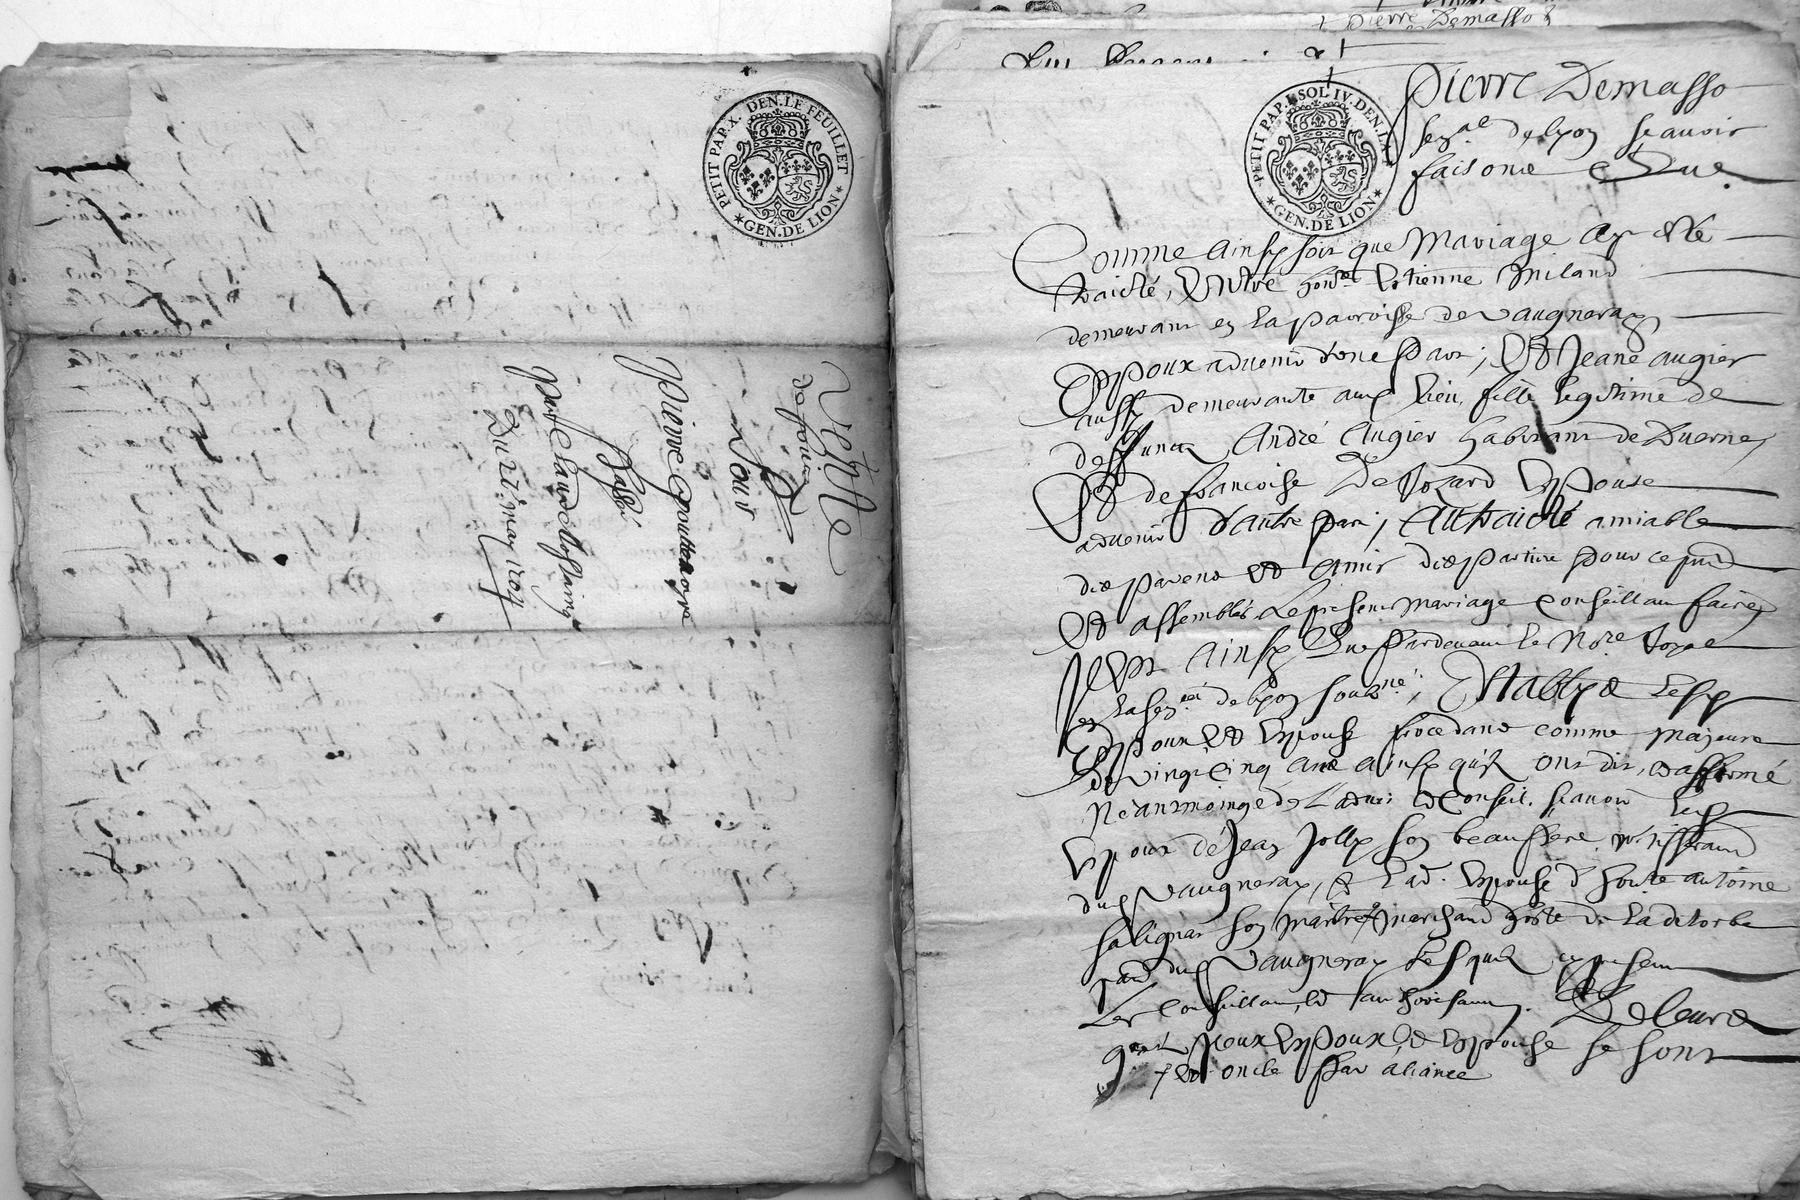 PETIT PAP. X. DEN. LE FEUILLET
GEN. DE LION
Vente
de fond
Pour
Pierre
Du 21e may 1704
Pierre Demasso
PETIT PAP. I. SOL IV. DEN. LA
GEN. DE LION
Pierre Demasso
sen.al de lyon scauoir
faisons Que
Comme ainsy soit que Mariage ay esté
traicté, Entre hon.te Estienne Miland
demeurant en la parroisse de Vaugneray
Espoux aduenir d'une part; Et Jeane augier
aussy demeurante aud. lieu, fille legitime de
deffunct André Augier habitant de Duerne,
Et de francoise De Espouse
aduenir d'autre part; Au traicté amiable
des parens Et amis des parties pour ce
Et assemblés. Le present mariage Conseillant faire,
Est Ainsy Que pardeuant le No.re Royal
en la sen. de lyon soub.né; Establys Lesd.
Espoux Et Espouse procedans comme majeurs
de vingt Cinq ans ainsy qu'ils ont dit, et affirmé
Neantmoings de L'aduis et Conseil, scauoir led.
Espoux de Jean Jolly son beaufrere, tisserand
dud. Vaugneray, & Lad. Espouse d'hon.te antoine
salignat son maitre Marchand hoste de La
dud. Vaugneray Lesquels cy presens
Les Conseillant, et authorisant. De leurs
gréz Iceux Espoux et Espouse se sont
+ Et oncle par aliance